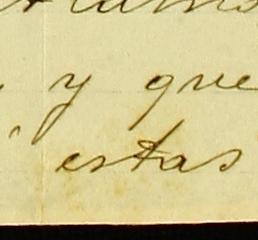 y que
estas